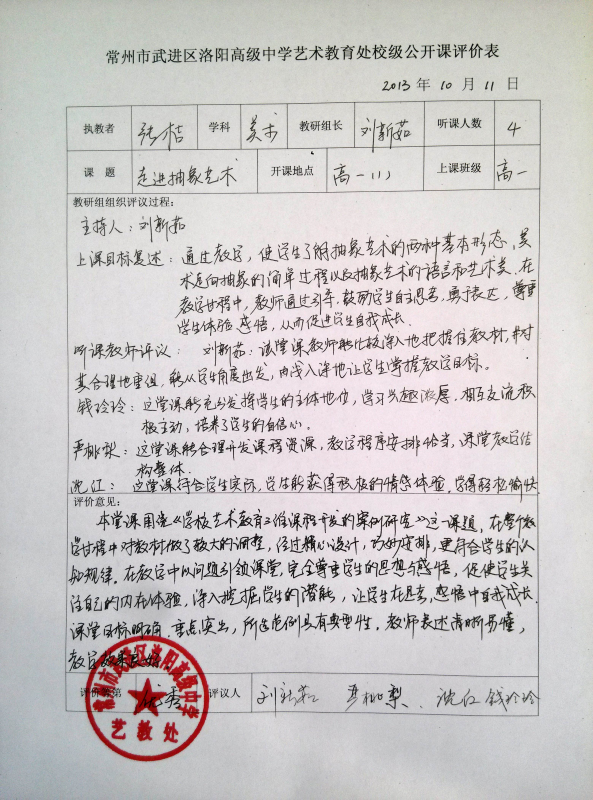 常州市武进区洛阳高级中学艺术教育处校级公开课评价表
2013 年 10 月 11 日
执教者 张桔 学科 美术 教研组长 刘新茹 听课人数 4
课 题 走进抽象艺术 开课地点 高一(1) 上课班级 高一
教研组组织评议过程:
主持人:刘新茹
上课目标复述:通过教学,使学生了解抽象艺术的两种基本形态、美
术走向抽象的简单过程以及抽象艺术的语言和艺术美、在
教学过程中,教师通过引导,鼓励学生自主思考,勇于表达,尊重
学生体验、感悟,从而促进学生自我成长.
听课教师评议: 刘新茹:该堂课教师能比较深入地把握住教材,并对
其合理地重组,能从学生角度出发,由浅入深地让学生掌握教学目标。
钱玲玲:这堂课能充分发挥学生的主体地位,学习兴趣浓厚、相互交流积
极主动,培养了学生的自信心。
严桃梨:这堂课能合理开发课程资源,教学程序安排恰当,课堂教学结
构整体.
沈红:这堂课符合学生实际,学生能获得积极的情感体验,学得轻松愉快
评价意见:
本堂课围绕《学校艺术教育三维课程开发的案例研究》这一课题,在整个教
学过程中对教材做了较大的调整,经过精心设计,巧妙安排,更符合学生的认
知规律。在教学中以问题引领课堂,完全尊重学生的思想与感悟,促使学生关
注自己的内在体验,深入挖掘学生的潜能,让学生在思考、感悟中自我成长.
课堂目标明确,重点突出,所选范例具有典型性。教师表述清晰易懂,
教学效果良好
评价等第 优秀 评议人 刘新茹 严桃梨、沈红 钱玲玲
常州市武进区洛阳高级中学
艺教处